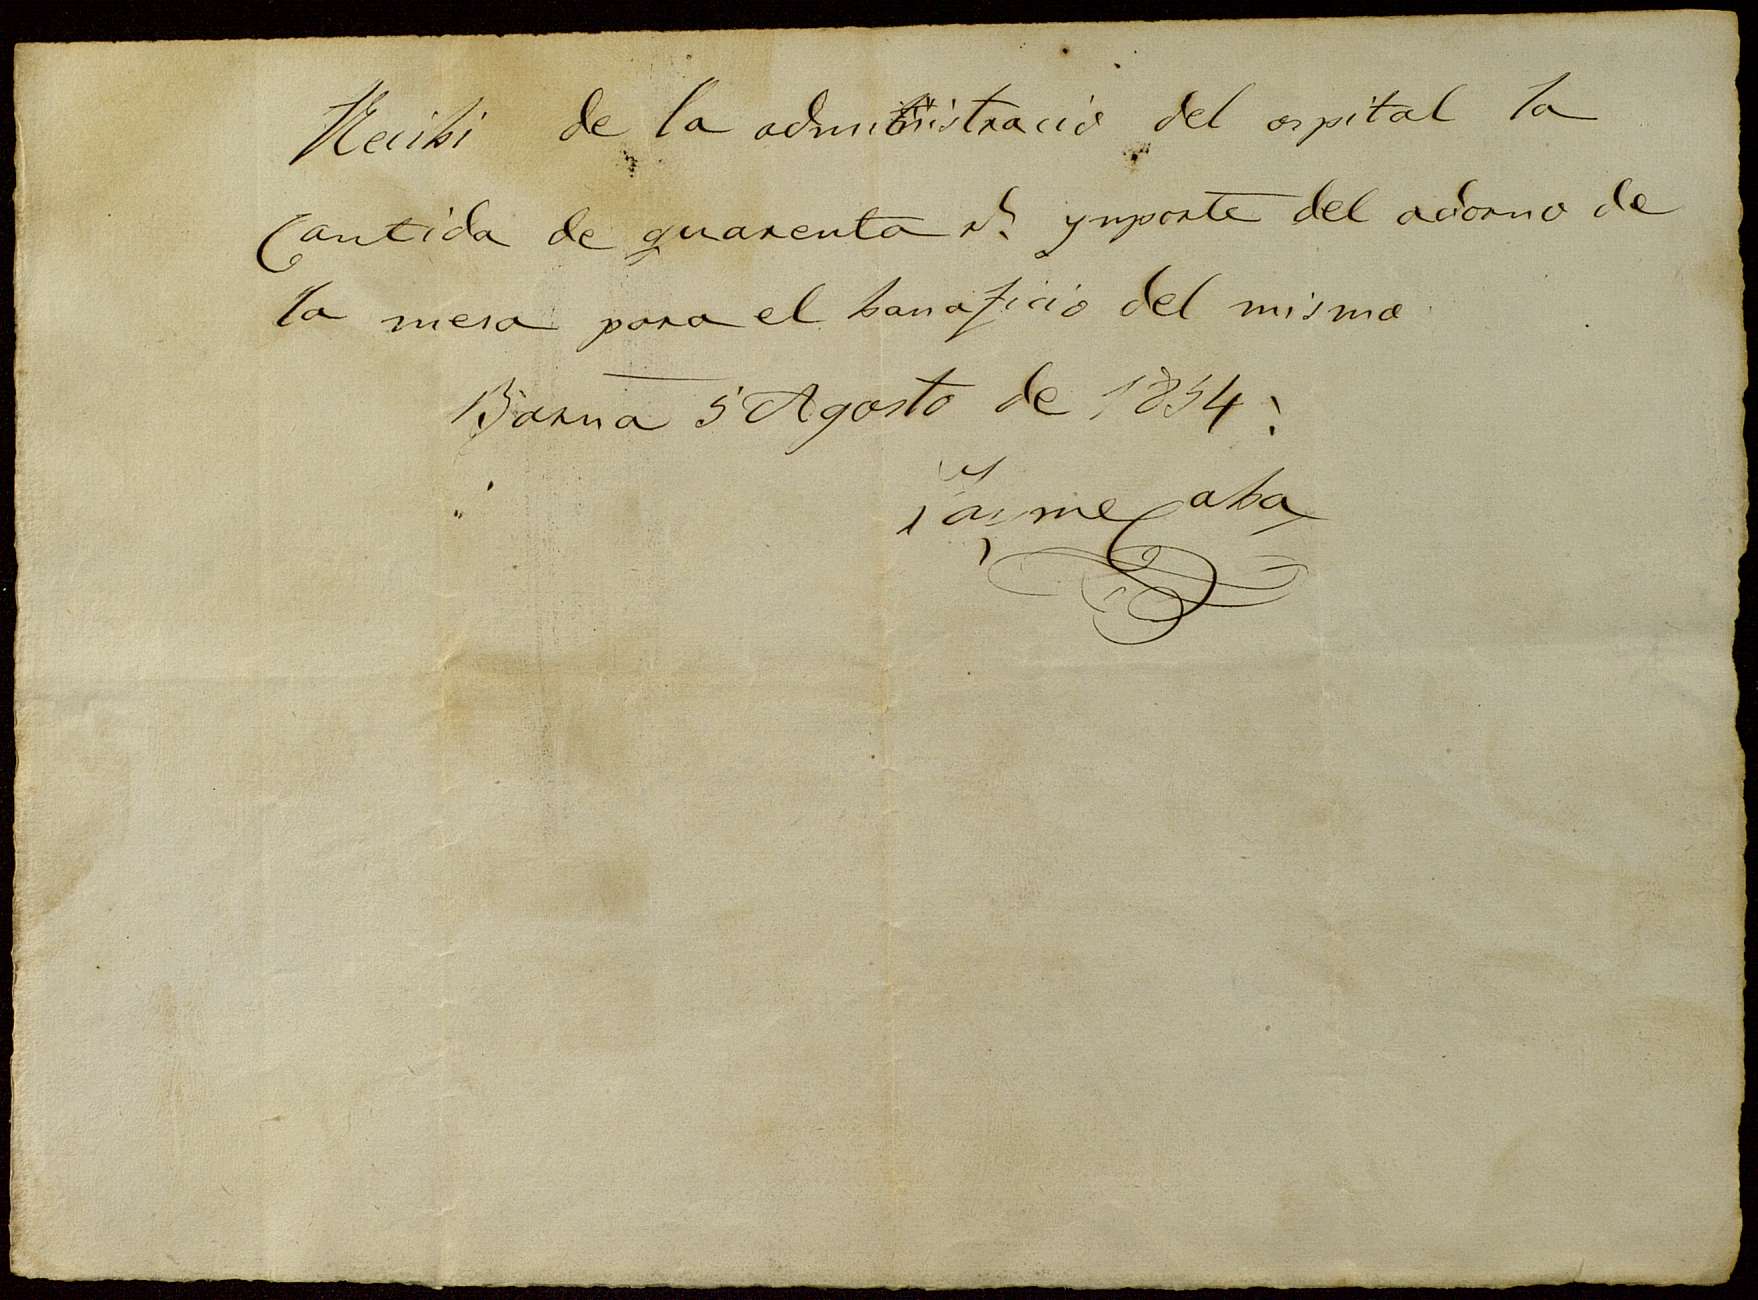 Recibi de la administracio del ospital la
Cantida de quarenta rs. ynporte del adorno de
la mesa para el banaficio del mismo
Barna 5 Agosto de 1854.
Jayme Caba